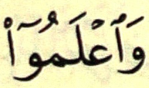 وَٱعۡلَمُوٓاْ